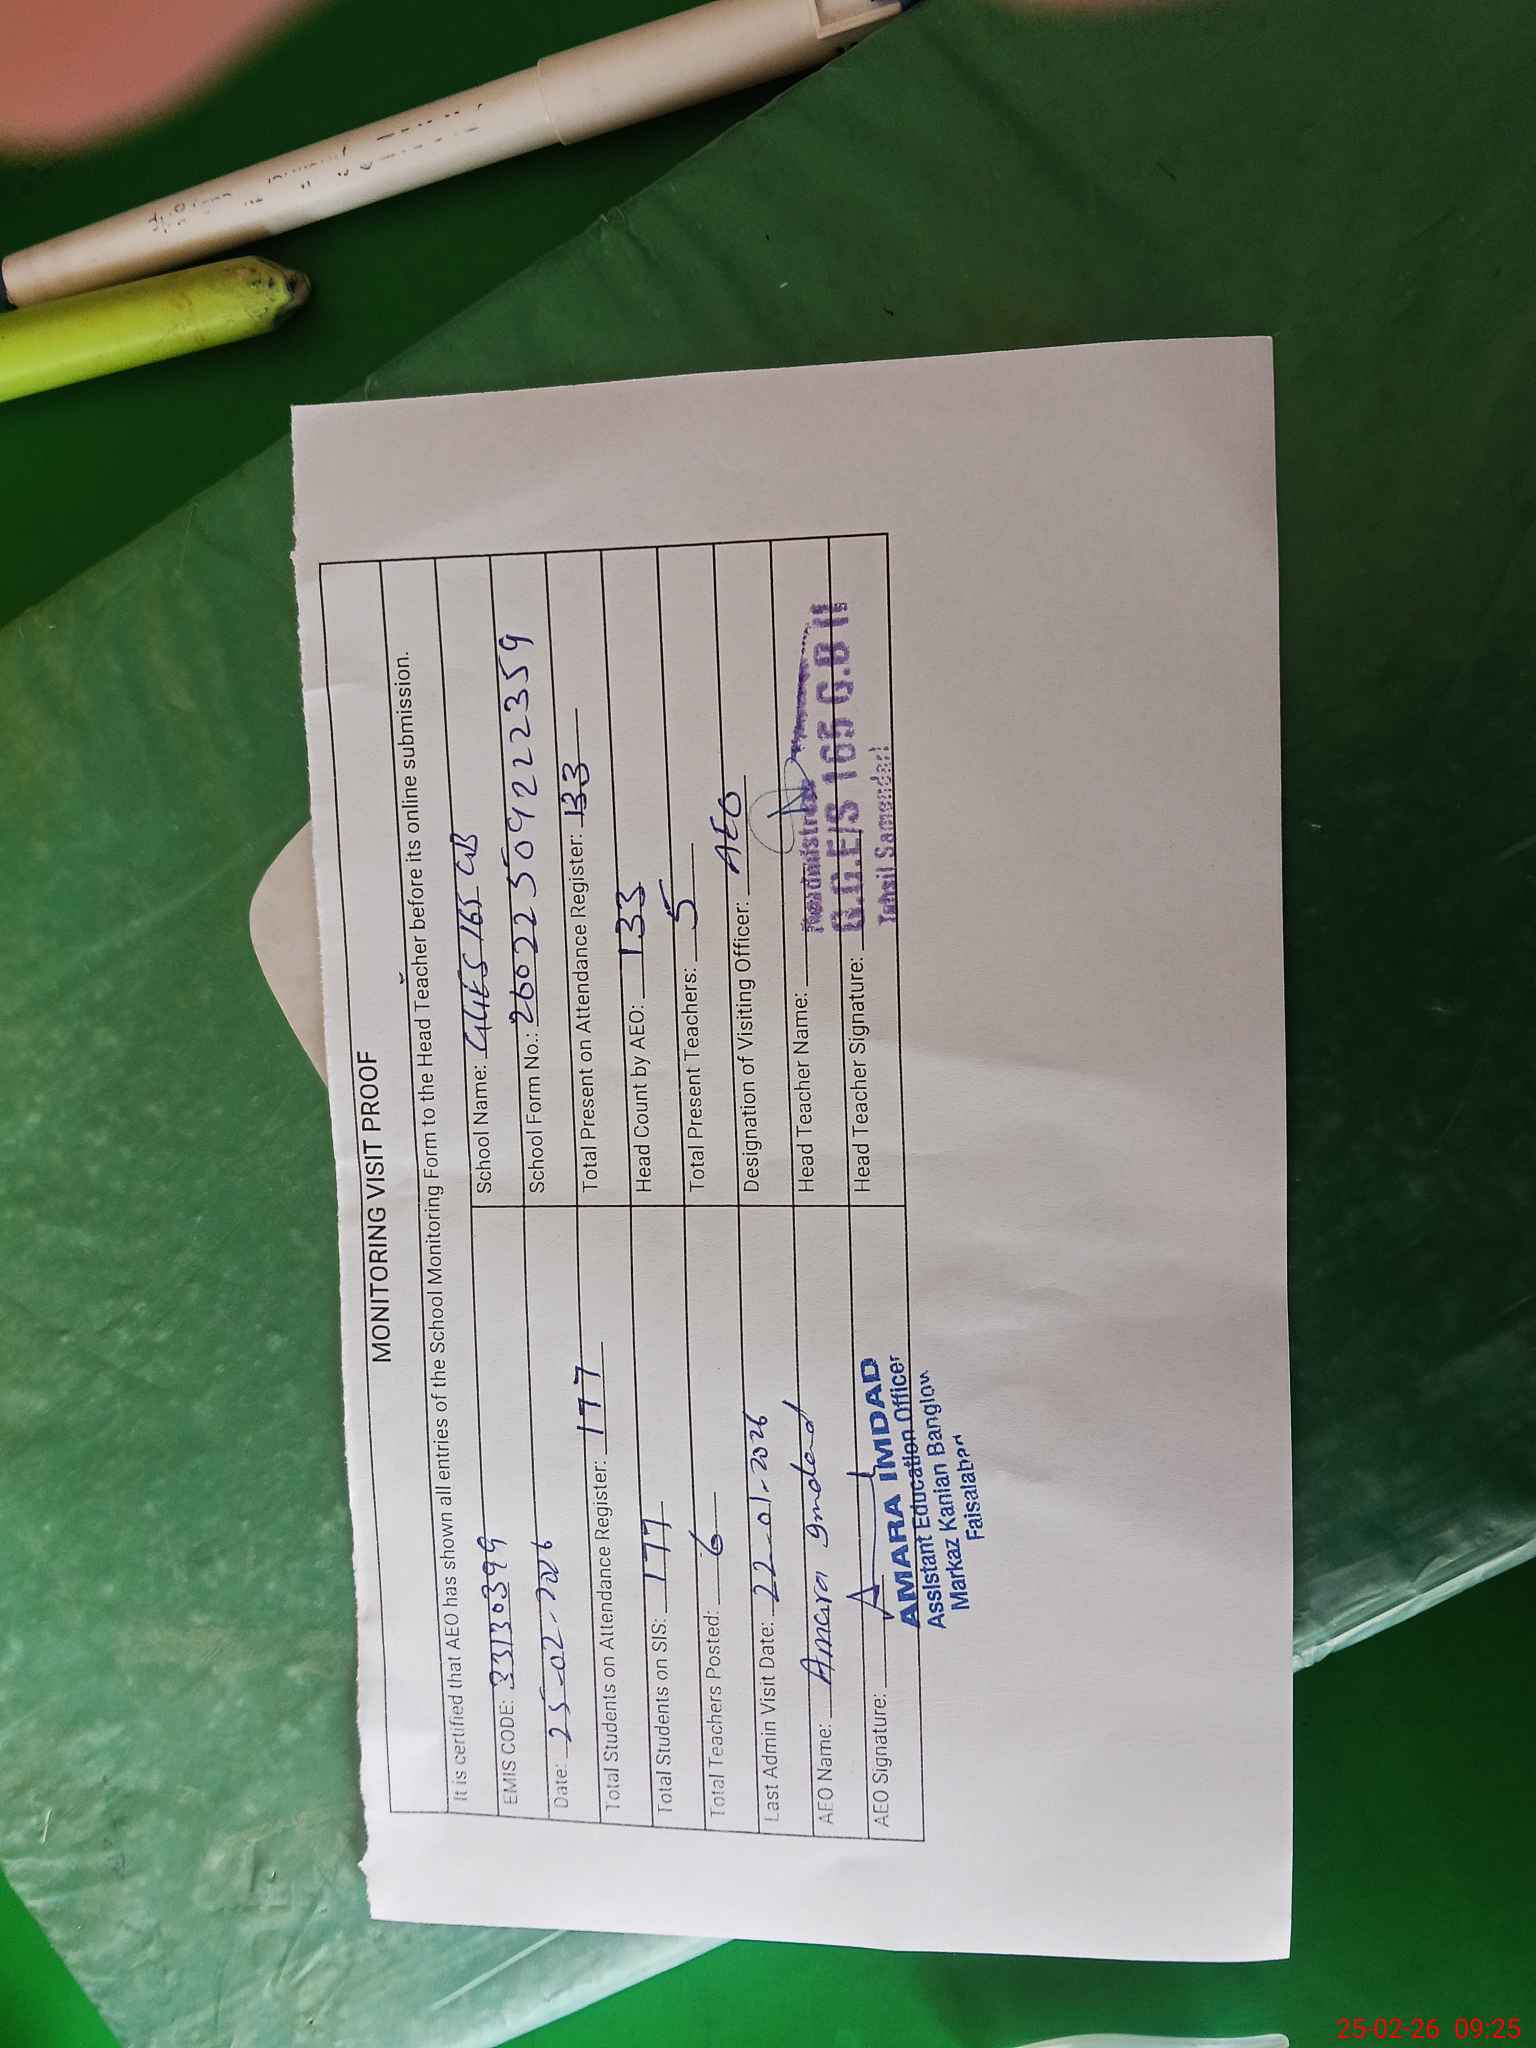 MONITORING VISIT PROOF
It is certified that AEO has shown all entries of the School Monitoring Form to the Head Teacher before its online submission.
EMIS CODE: 33130399
School Name: GGES 165 GB
Date: 25-02-2026
School Form No.: 26022509222359
Total Students on Attendance Register: 177
Total Present on Attendance Register: 133
Total Students on SIS: 177
Head Count by AEO: 133
Total Teachers Posted: 6
Total Present Teachers: 5
Last Admin Visit Date: 22-01-2026
Designation of Visiting Officer: AEO
AEO Name: Amara Imdad
Head Teacher Name:
AEO Signature:
Head Teacher Signature:
AMARA IMDAD
Assistant Education Officer
Markaz Kanian Banglow
Faisalabad
Headmistress
G.G.E/S 165 G.B
Tehsil Samundari
25-02-26 09:25